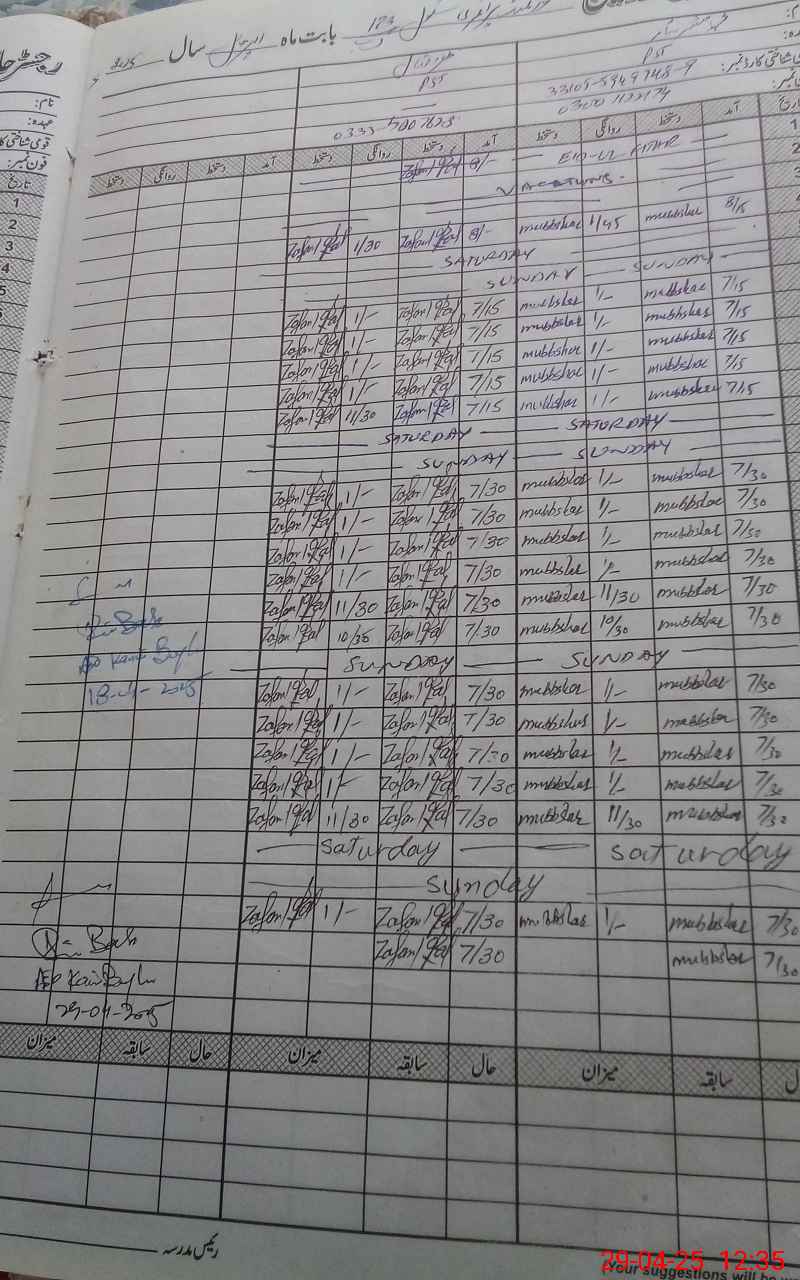 بابت ماہ اپریل سال 2025
PST PST
33105-5949748-9
رجسٹر حا
نام:
عہدہ:
قومی شناختی کا
فون نمبر:
تاریخ
دستخط روانگی دستخط آمد دستخط روانگی دستخط آمد دستخط روانگی دستخط آمد
Zafar Iqbal 8/- EID-UL FITAR
VACATIONS
Zafar Iqbal 1/30 Zafar Iqbal 8/- mubbshar 1/45 mubbshar 8/15
SATURDAY
SUNDAY SUNDAY
Zafar Iqbal 1/- Zafar Iqbal 7/15 mubbshar 1/- mubbshar 7/15
Zafar Iqbal 1/- Zafar Iqbal 7/15 mubbshar 1/- mubbshar 7/15
Zafar Iqbal 1/- Zafar Iqbal 7/15 mubbshar 1/- mubbshar 7/15
Zafar Iqbal 1/- Zafar Iqbal 7/15 mubbshar 1/- mubbshar 7/15
Zafar Iqbal 11/30 Zafar Iqbal 7/15 mubbshar 1/- mubbshar 7/15
SATURDAY SATURDAY
SUNDAY SUNDAY
Zafar Iqbal 1/- Zafar Iqbal 7/30 mubbshar 1/- mubbshar 7/30
Zafar Iqbal 1/- Zafar Iqbal 7/30 mubbshar 1/- mubbshar 7/30
Zafar Iqbal 1/- Zafar Iqbal 7/30 mubbshar 1/- mubbshar 7/30
Zafar Iqbal 1/- Zafar Iqbal 7/30 mubbshar 1/- mubbshar 7/30
Zafar Iqbal 11/30 Zafar Iqbal 7/30 mubbshar 11/30 mubbshar 7/30
Zafar Iqbal 10/30 Zafar Iqbal 7/30 mubbshar 10/30 mubbshar 7/30
SUNDAY SUNDAY
18-04-2025
Zafar Iqbal 1/- Zafar Iqbal 7/30 mubbshar 1/- mubbshar 7/30
Zafar Iqbal 1/- Zafar Iqbal 7/30 mubbshar 1/- mubbshar 7/30
Zafar Iqbal 1/- Zafar Iqbal 7/30 mubbshar 1/- mubbshar 7/30
Zafar Iqbal 1/- Zafar Iqbal 7/30 mubbshar 1/- mubbshar 7/30
Zafar Iqbal 11/30 Zafar Iqbal 7/30 mubbshar 11/30 mubbshar 7/30
Saturday Saturday
Sunday
Zafar Iqbal 1/- Zafar Iqbal 7/30 mubbshar 1/- mubbshar 7/30
Zafar Iqbal 7/30 mubbshar 7/30
29-04-2025
میزان سابقہ حال میزان سابقہ حال میزان سابقہ
رئیس مدرسہ
29-04-25 12:35
Your suggestions will be